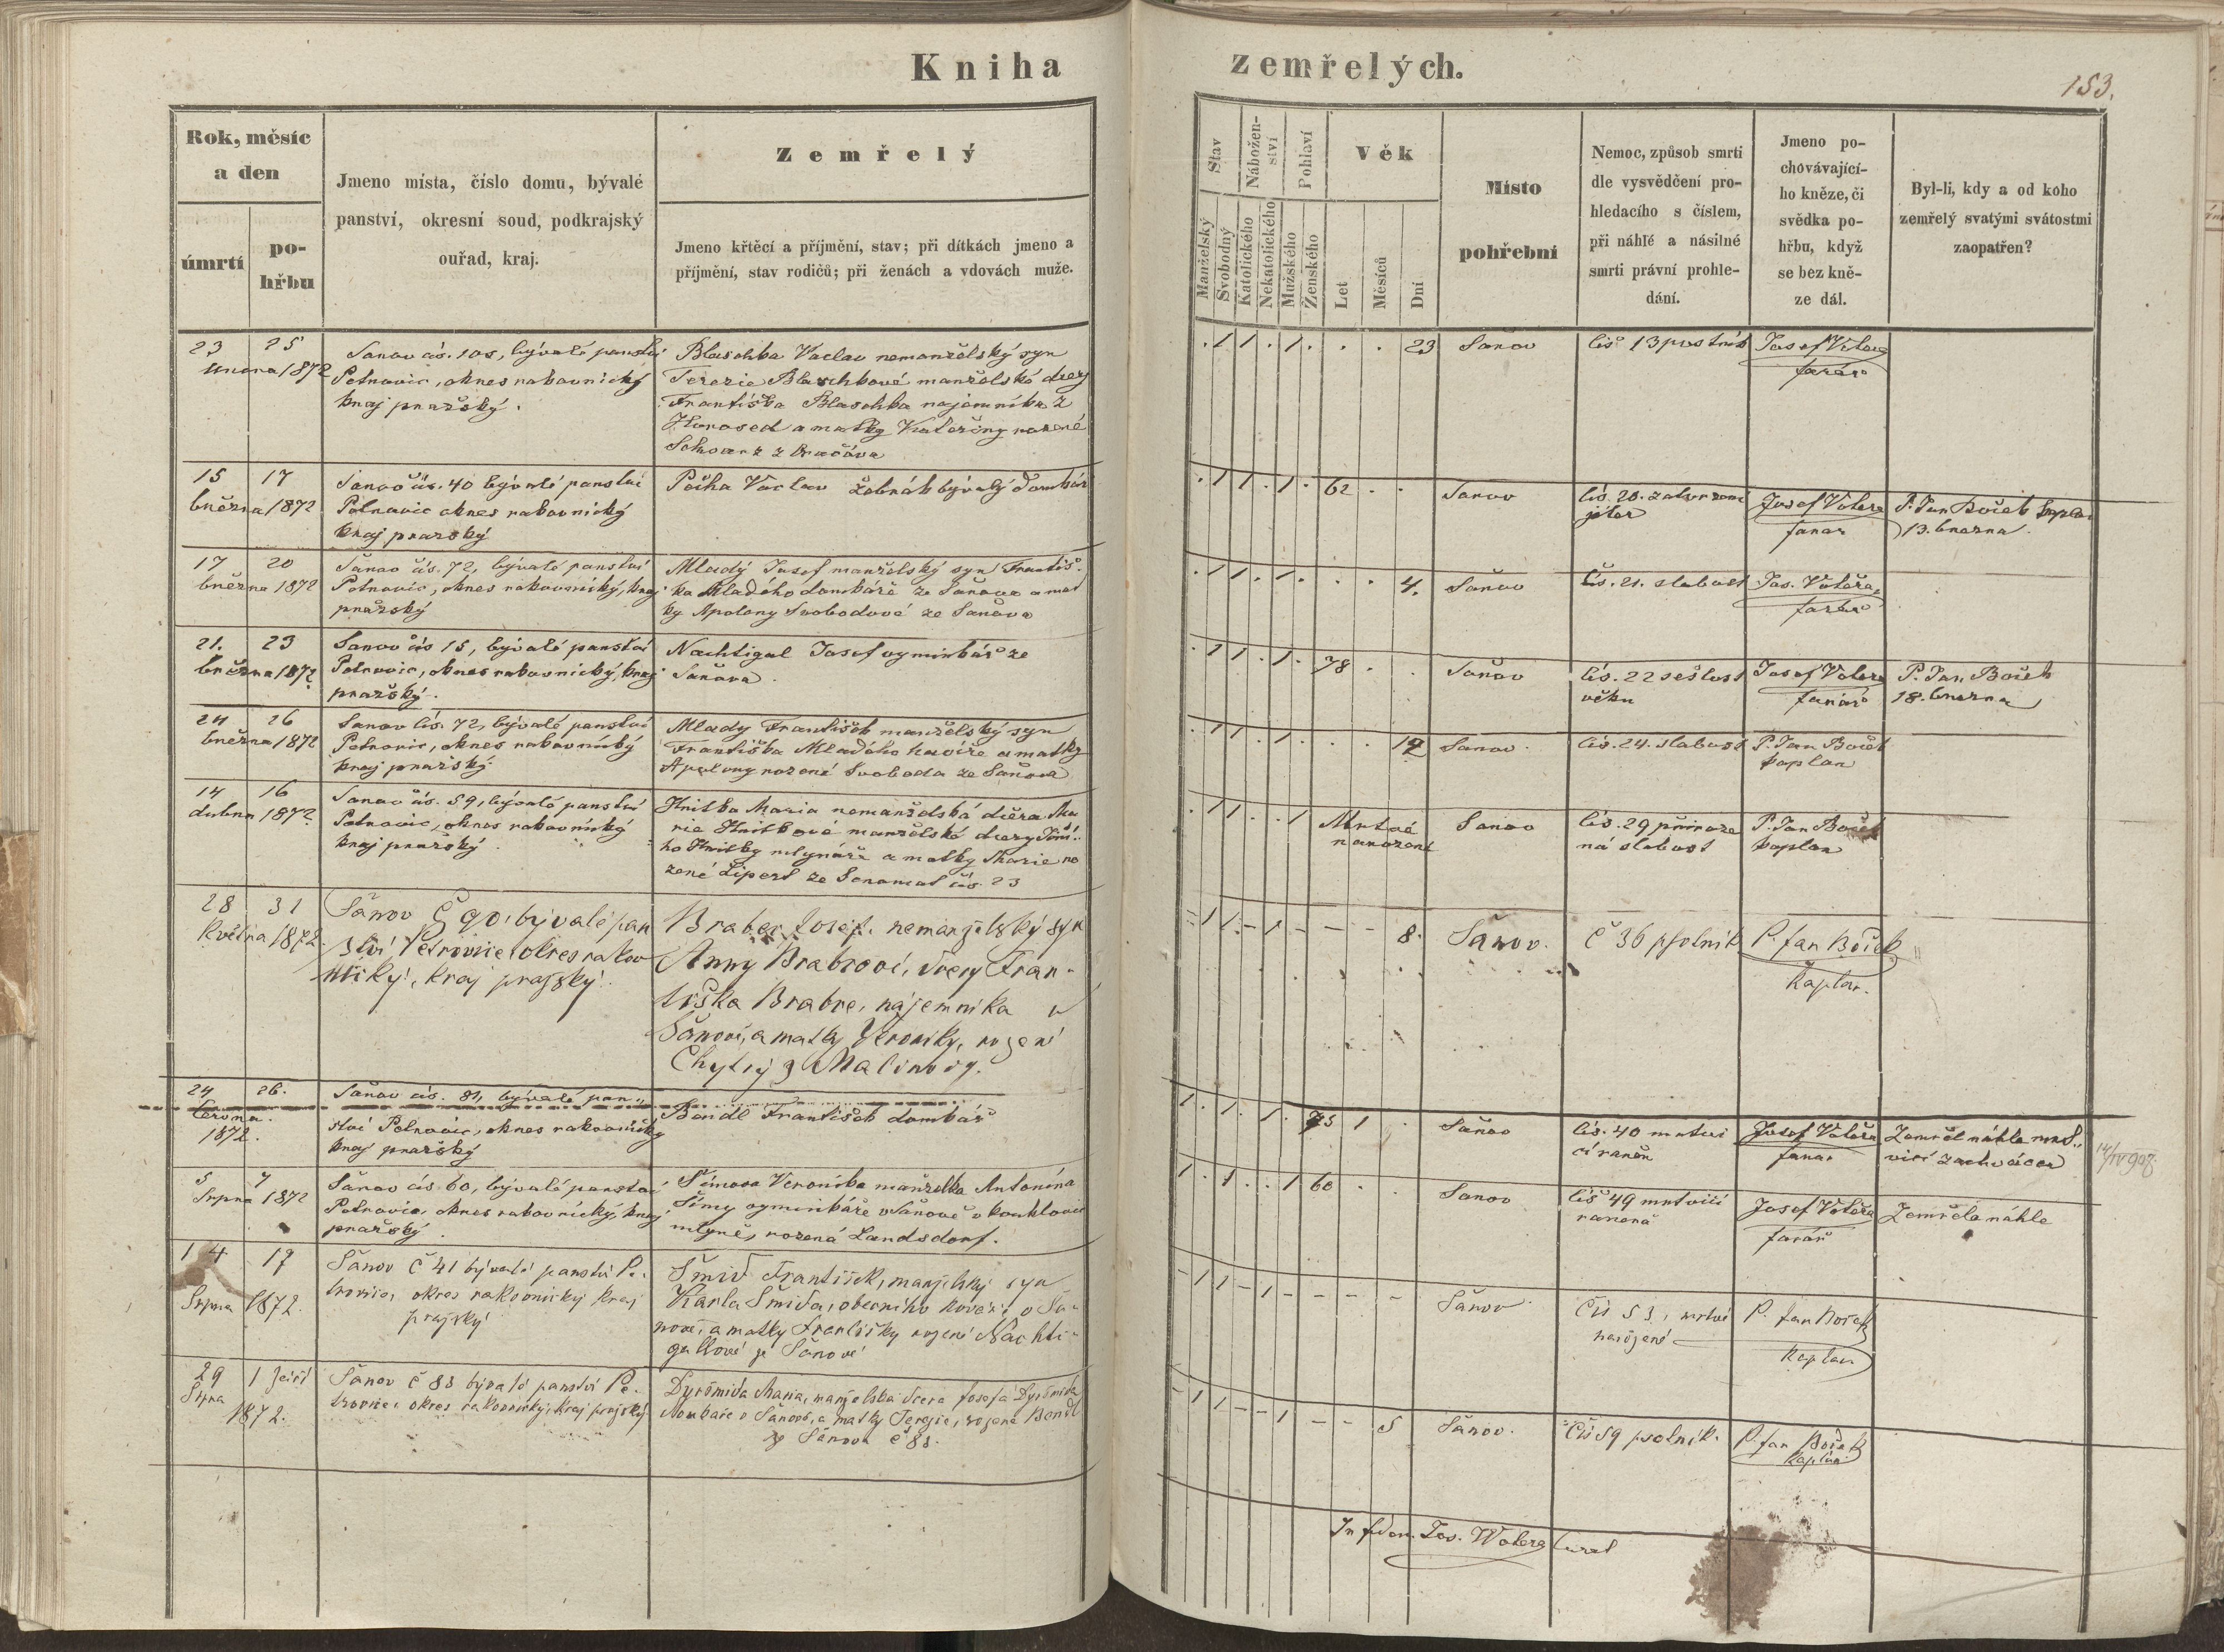 Kniha
zemřelých.
153.
Rok, měsíc
a den
úmrtí
po-
hřbu
Jmeno místa, číslo domu, bývalé
panství, okresní soud, podkrajský
ouřad, kraj.
Zemřelý
Jmeno křtěcí a příjmění, stav; při dítkách jmeno a
příjmění, stav rodičů; při ženách a vdovách muže.
Stav
Manželský
Svobodný
Nábožen-
ství
Katolického
Nekatolického
Pohlaví
Mužského
Ženského
Věk
Let
Měsíců
Dní
Místo
pohřební
Nemoc, způsob smrti
dle vysvědčení pro-
hledacího s číslem,
při náhlé a násilné
smrti právní prohle-
dání.
Jmeno po-
chovávající-
ho kněze, či
svědka po-
hřbu, když
se bez kně-
ze dál.
Byl-li, kdy a od koho
zemřelý svatými svátostmi
zaopatřen?
23 25
února 1872
Šanov čís. 105, bývalé panství
Petrovic, okres rakovnický
kraj pražský.
Blaschka Vaclav nemanželský syn
Terezie Blaschkové manželské dcery
Františka Blaschka najemníka z
Horosed a matky Kateřiny rozené
Schwarz z
. 1 1 . 1 . . . 23
Šanov
čís 13 psotník
Josef Votera
farář
15 17
března 1872
Šanov čís. 40 bývalé panství
Petrovic okres rakovnický
kraj pražský
Pecha Vaclav žebrák bývalý domkář
. 1 1 . 1 . 62 . .
Šanov
čís. 20.
jater
Josef Votera
farář
P. Jan Bořek kaplan
13. března.
17 20
března 1872
Šanov čís. 72, bývalé panství
Petrovic, okres rakovnický, kraj
pražský
Mladý Josef manželský syn Františ-
ka Mladého domkáře ze Šanova a mat
ky Apolony Svobodové ze Šanova
. 1 1 . 1 . . . 4.
Šanov
čís. 21. slabost
Jos. Votera,
farář
21. 23
března 1872
Šanov čís 15, bývalé panství
Petrovic, okres rakovnický, kraj
pražský.
Nachtigal Josef vyminkář ze
Šanova.
. 1 1 . 1 . 78 . .
Šanov
čís. 22 sešlost
věku
Josef Votera
farář
P. Jan Bořek
18. března
24 26
března 1872
Šanov čís. 72, bývalé panství
Petrovic, okres rakovnický
kraj pražský
Mlady František manželský syn
Františka Mladého havíře a matky
Apolony rozené Svoboda ze Šanova
. 1 1 . 1 . . .
Šanov.
čís. 24. slabost
P. Jan Bořek
kaplan
14 16
dubna 1872
Šanov čís. 59, bývalé panství
Petrovic, okres rakovnický
kraj pražský.
Hnitka Maria nemanželská dcera Ma
rie Hnitkové manželské dcery
ho Hnitky mlynáře a matky Marie ro
zené Lipert ze Senomat čís. 23
. 1 1 . . 1 Mrtvě
narozené
Šanov
čís. 29 přiroze
ná slabost
P. Jan Bořek
kaplan
28 31
Května 1872.
Šanov Č 90, bývalé pan
ství Petrovice okres rakov
nický, kraj pražský.
Braber Josef. nemanželský syn
Anny Brabrové, dcery Fran-
tiška Brabre, nájemníka v
Šanově, a matky Veroniky, rozené
Chytrý z Malinovy.
– 1 1 – 1 – – – 8.
Šanov.
č 36 psotník
P. Jan Bořek
Kaplan.
24 26.
Června.
1872.
Šanov čís. 81, bývalé pan„
ství Petrovic, okres rakovnický
kraj pražský
Bendl František domkář
1 . 1 . 1 . 75 1 .
Šanov
čís. 40 mrtvi
cí raněn
Josef Votera
farář
Zemřel náhle mrt„
vicí zachvácen
5 7
Srpna 1872
Šanov čís 60, bývalé panství
Petrovic, okres rakovnický, kraj
pražský.
Šímova Veronika manželka Antonína
Šímy vyminkáře v Šanově v kouklovic
mlyně, rozená Landsdorf.
1 . 1 . . 1 60 . .
Šanov
čís 49 mrtvicí
raněná
Josef Votera
farář
Zemřela náhle
14 17
Srpna 1872.
Šanov č 41 bývalé panství Pe-
trovice, okres rakovnický kraj
pražský
Šmíd František, manželský syn
Karla Šmída, obecního kováře v Ša-
nově, a matky Františky rozené Nachti-
gallové ze Šanova
– 1 1 – 1 – – – –
Šanov.
Čís 53, mrtvě
narozené
P. Jan Bořek
Kaplan
29 1 Září
Srpna
1872.
Šanov č 83 bývalé panství Pe-
trovice, okres rakovnický, kraj pražský.
Dyršmída Maria, manželská dcera Josefa Dyršmída
domkaře v Šanově, a matky Terezie, rozené Bendl
ze Šanova č 83.
– 1 1 – – 1 – – 5
Šanov.
Čís 59 psotník.
P. Jan Bořek
Kaplan.
In fidem. Jos. Wotera